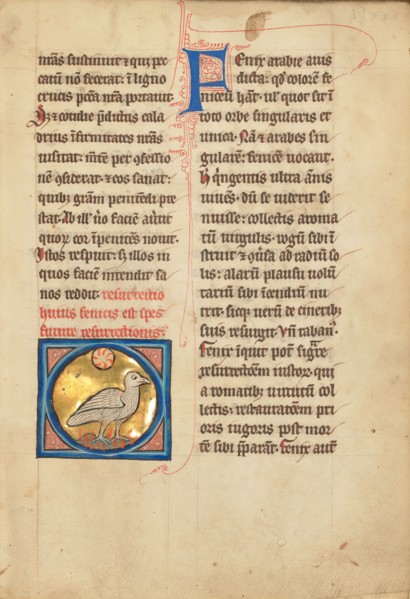 nr̄as sustinuit ⁊ qui pec
catū nō fecerat· ĩ ligno
crucis pcc̄a nr̄a portauit·
Hꝫ ⁊ cotidie p̄dictus cala
drius ĩfirmitates nr̄as
uisitat· mētē per ꝯfessio
nē ꝯsiderat· ⁊ eos sanat·
quibꝫ gr̄am penitēdi pre
stat· Ab ill' ūo faciē au͛tit
quoꝝ cor ĩpenitēs nouit·
Istos respuit· sꝫ illos in
quos faciē intendit sa
nos reddit· resurrectio
huius fenicis est spes
future resurrectionis·
Fenix arabie auis
dicta· qd̓ colorē fe
niceū hāt· ul' quot sit ĩ
toto orbe singularis et
unica· Nā ⁊ arabes sin
gularē· fenicē uocant·
h̓ qͥngentis ultra ānis
uiuēs· dū se uiderit se
nuisse· collectis aroma
tū uirgulis· rogū sibi ĩ
struit ⁊ ꝯuͥsa ad radiū so
lis· alarū plausu uolū
tariū sibi ĩcendiū nu
trit· sicqꝫ ueru de cineribꝫ
suis resurgit· Vn̄ raban̓·
Fenix ĩquit pot̄ sig͛re
resurrectōem iustoꝝ· qui
aromatibꝫ uirtutū col
lectis· restauratōem pri
oris uigoris post mor
tē sibi p̄parāt· Fenix aut̄